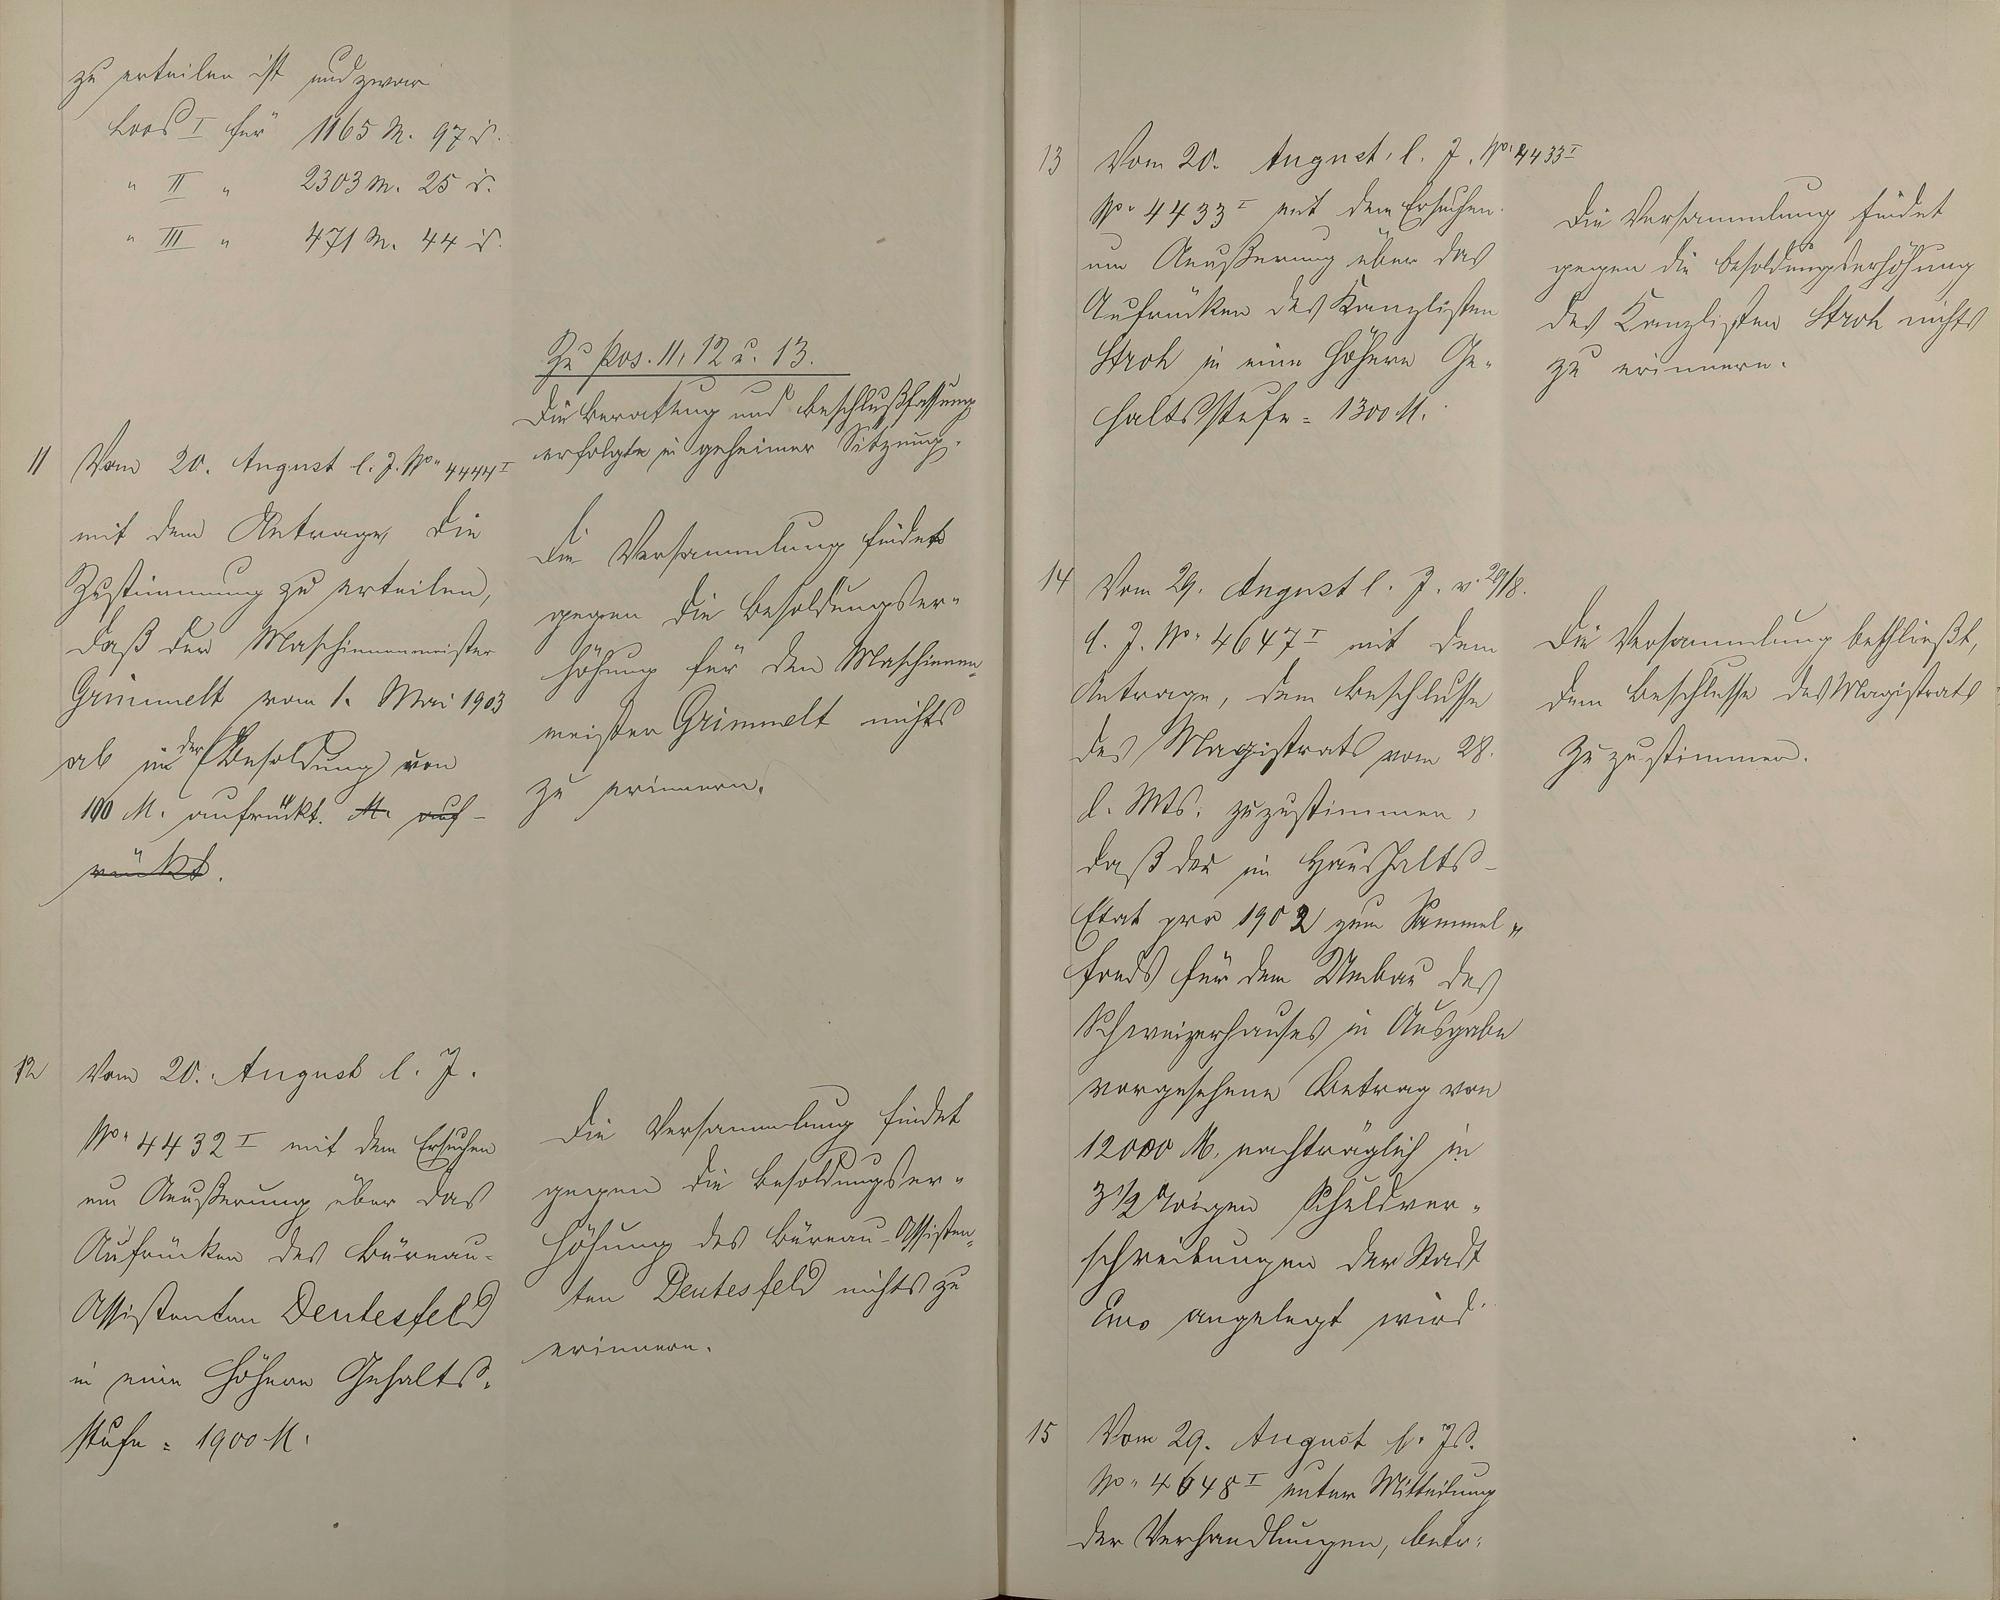 zu erteilen ist und zwar
Loos I für 1165 M. 97 d.
" II " 2303 M. 25 d.
" III " 471 M. 44 d.
11 Vom 20. August l. J. No. 4444 I
mit dem Antrage, die
Zustimmung zu erteilen,
daß der Maschinenmeister
Grimmelt vom 1. Mai 1903
ab in der (Besoldung) von
100 M. aufrückt. M. auf-
rückt.
12 Vom 20. August l. J.
No. 4432 I mit dem Ersuchen
um Aeußerung über das
Aufrücken des Büreau-
Assistenten Deutesfeld
in eine höhere Gehalts-
stufe = 1900 M.
Zu pos. 11, 12 u. 13.
Die Beratung und Beschlußfassung
erfolgte in geheimer Sitzung.
Die Versammlung findet
gegen die Besoldungser-
höhung für den Maschinen-
meister Grimmelt nichts
zu erinnern.
Die Versammlung findet
gegen die Besoldungser-
höhung des Büreau-Assisten-
ten Deutesfeld nichts zu
erinnern.
13 Vom 20. August l. J. No. 4433 I
No. 4433 I mit dem Ersuchen
um Aeußerung über das
Aufrücken des Kanzlisten
Stroh in eine höhere Ge-
haltsstufe = 1300 M.
Die Versammlung findet
gegen die Besoldungserhöhung
des Kanzlisten Stroh nichts
zu erinnern.
14 Vom 29. August l. J. v. 29/8.
l. J. No. 4647 I mit dem
Antrage, dem Beschlusse
des Magistrats vom 28.
l. Mts. zuzustimmen,
daß der im Haushalts-
Etat pro 1902 zum Sammel-
fonds für dem Umbau des
Schweizerhauses in Ausgabe
vorgesehene Betrag von
12000 M. nachträglich in
3 1/2 %igen Schuldver-
schreibungen der Stadt
Ems angelegt wird
Die Versammlung beschließt,
dem Beschlusse des Magistrats
zuzustimmen.
15 Vom 29. August l. Js.
No. 4648 I unter Mitteilung
der Verhandlungen, betr.